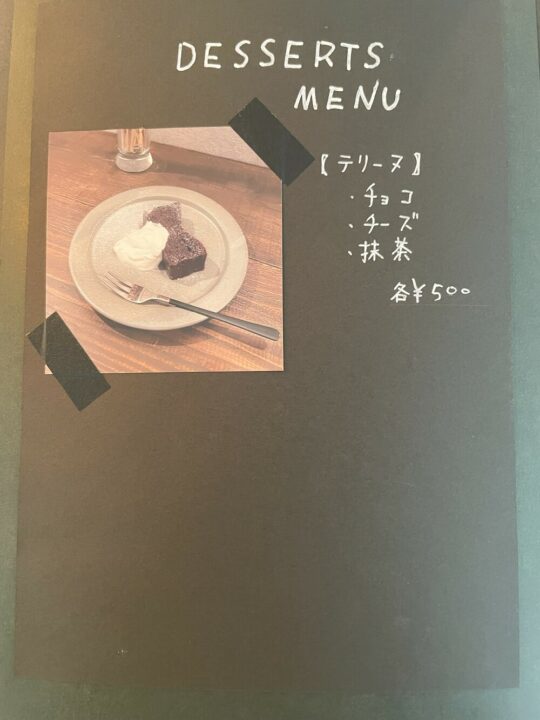 DESSERTS
MENU
【テリーヌ】
・チョコ
・チーズ
・抹茶
各¥500